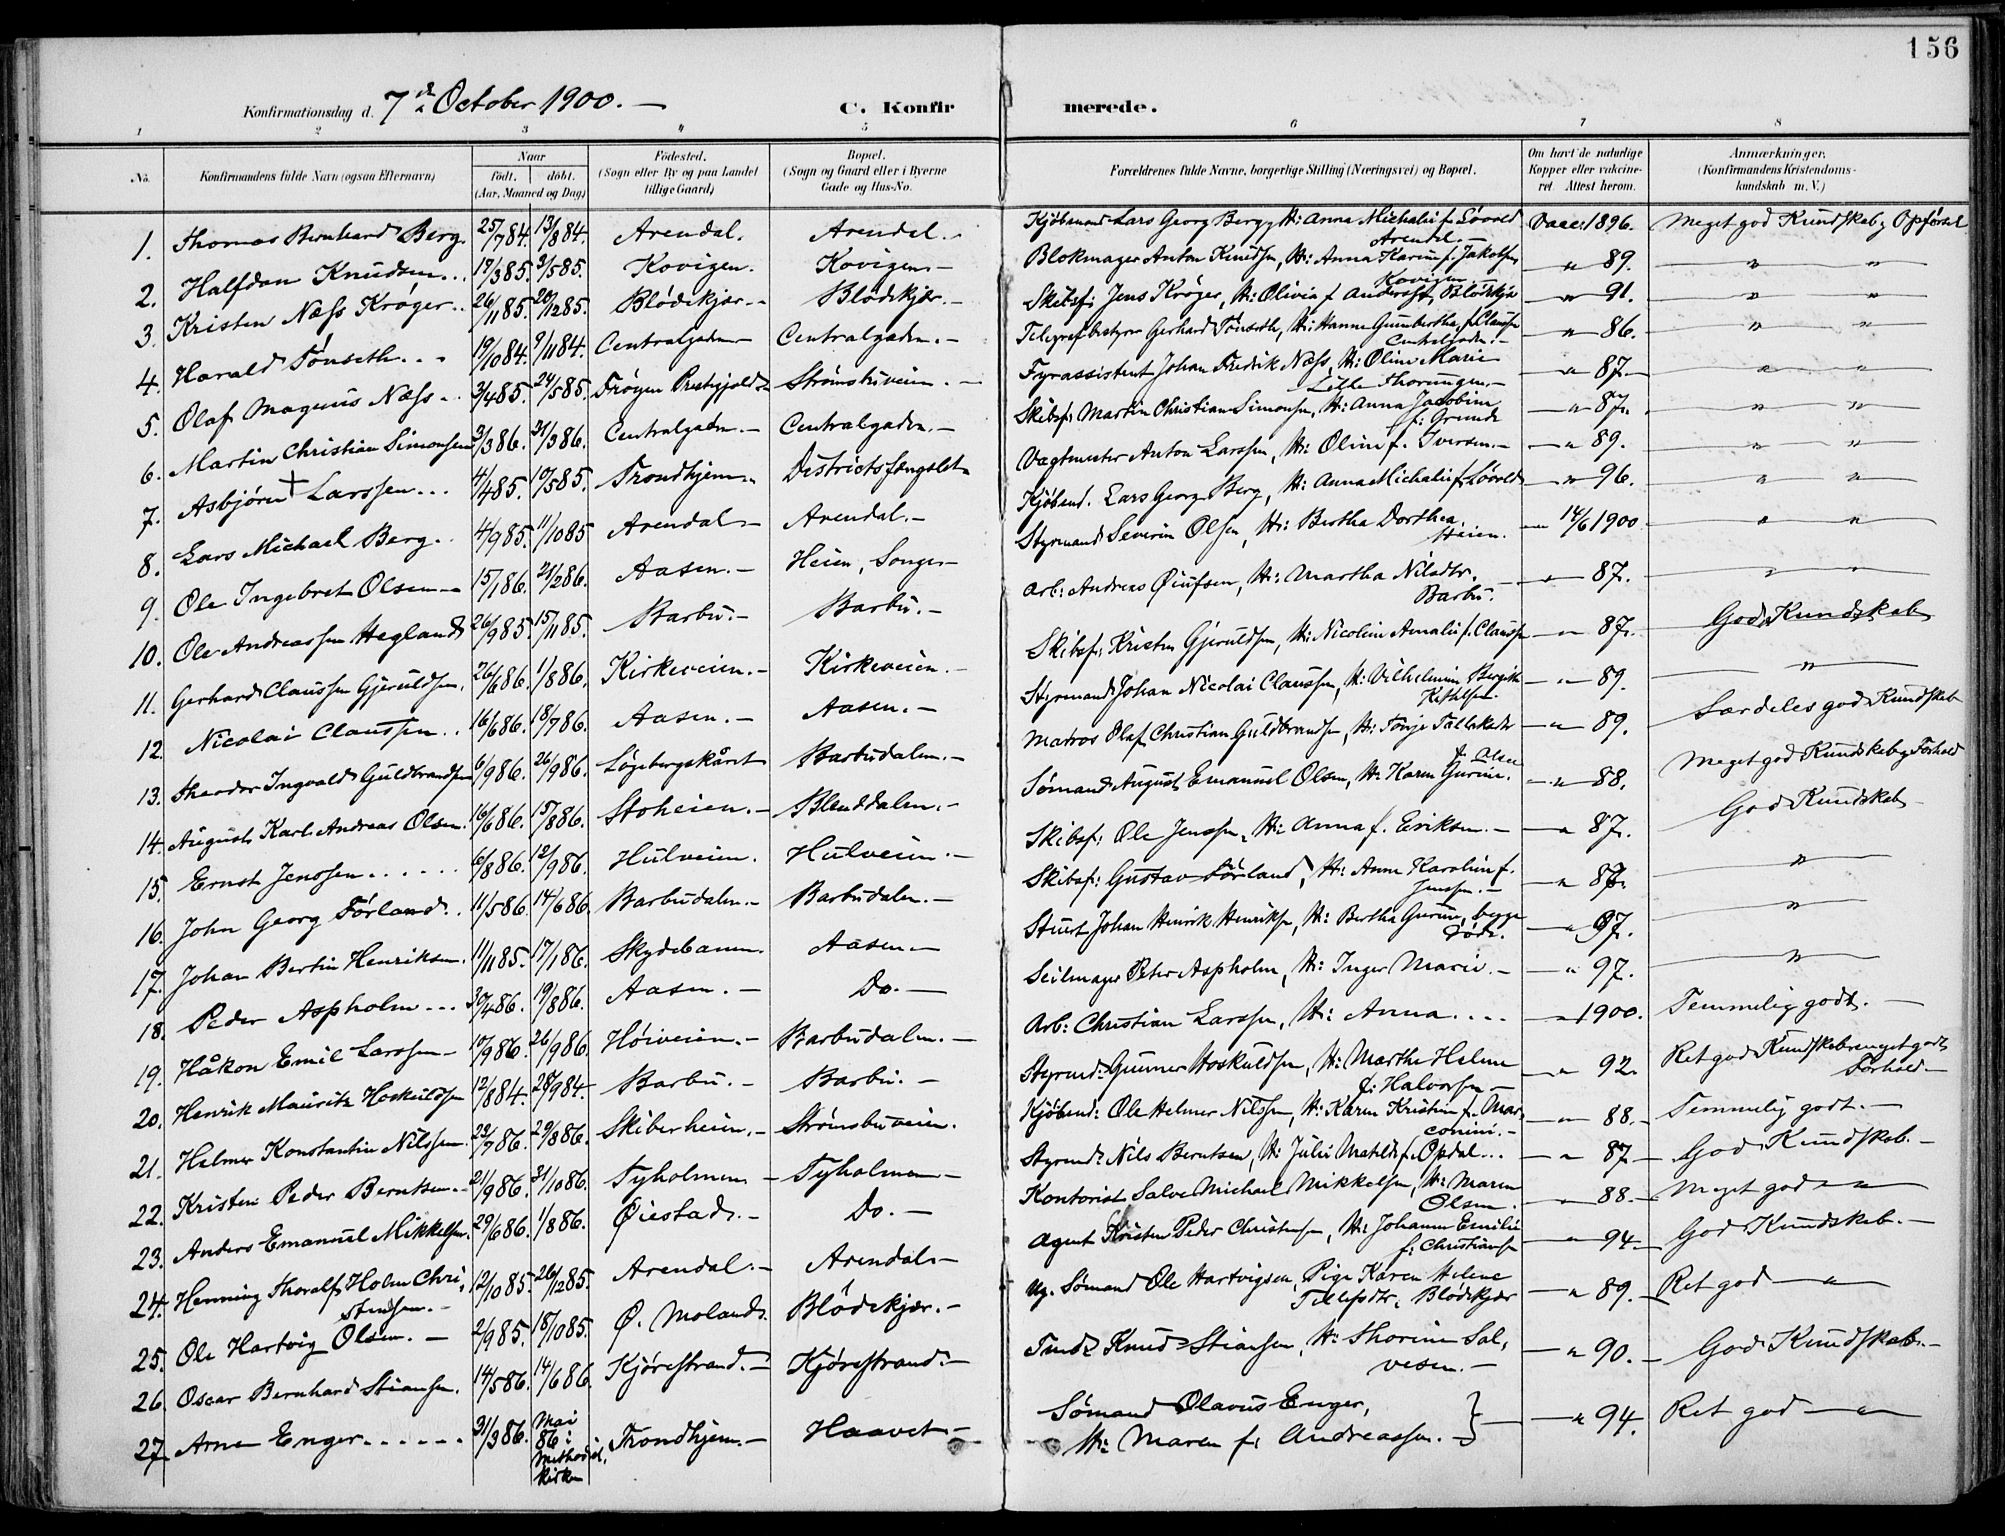 156
Konfirmationsdag d. 7de October 1900. —
C. Konfirmerede.
1 2 3 4 5 6 7 8
No. Konfirmandens fulde Navn (ogsaa Efternavn) Naar født. døbt. (Aar, Maaned og Dag) Fødested. (Sogn eller By og paa Landet tillige Gaard) Bopæl. (Sogn og Gaard eller i Byerne Gade og Hus-No. Forældrenes fulde Navne, borgerlige Stilling (Næringsvei) og Bopæl. Om havt de naturlige Kopper eller vakcineret. Attest herom. Anmærkninger. (Konfirmandens Kristendomskundskab m. V.)
1. Thomas Bernhard Berg 25/7 84. 13/8 84. Arendal. Arendal. Kjøbmand Lars Georg Berg, H: Anna Michalie f. Løvold Arendal. — Vacc: 1896. Meget god Kundskab og Opførsel
2. Halfdan Knudsen 19/3 85. 3/5 85. Kovigen. Kovigen — Blokmager Anton Knudsen, H: Anna Karine f. Jakobsen Kovigen — " 89. " "
3. Kristen Næss Krøger 26/11 85. 20/12 85. Blødekjær. Blødekjær. — Skibsf: Jens Krøger, H: Olivia f. Anderssen, Blødekjær — " 91. " "
4. Harald Tønseth 19/10 84. 9/11 84. Centralgaden Centralgaden. — Telegrafbestyrer Gerhard Tønseth, H: Hanne Gumbertha f. Claussen Centralgaden. — " 86. " "
5. Olaf Magnus Næss 3/4 85. 24/5 85. Trøgen Prestegjeld Strømsbuveien. — Fyrassistent Johan Fredrik Næss, H: Oline Marie Lille Thorungen. — " 87. " "
6. Martin Christian Simonsen 3/3 86. 31/3 86. Centralgaden. Centralgaden. — Skibsf: Martin Christian Simonsen, H: Anna Jacobine f: Grunde — " 87. " "
7. Asbjørn + Larssen 4/4 85. 10/5 85. Trondhjem. Districtsfængslet Vagtmester Anton Larssen, H: Oline f. Iversen. — " 89. " "
8. Lars Michael Berg 4/9 85. 11/10 85 Arendal — Arendal. — Kjøbmd. Lars Georg Berg, H: Anna Michalie f. Løvold — " 96. " "
9. Ole Ingebret Olsen 15/1 86. 21/2 86. Aasen. — Heien, Songe — Styrmand Severin Olsen, H: Bertha Dorthea Heien. — 14/6 1900. " "
10. Ole Andreassen Hegland 26/9 85. 15/11 85. Barbu. — Barbu. — Arb: Andreas Øiufsen, H: Martha Nilsdtr. Barbu. — " 87. " "
11. Gerhard Claussen Gjeruldsen. 26/6 86. 1/8 86. Kirkeveien. — Kirkeveien. — Skibsf: Kristen Gjeruldsen, H: Nicoline Amalie f. Claussen — " 87. God Kundskab
12. Nicolai Claussen 16/6 86. 18/7 86. Aasen. — Aasen. — Styrmand Johan Nicolai Claussen, H: Vilhelmine Bergithe Ketilsen. — " 89. "
13. Theodor Ingvald Guldbrandsen 6/9 86. 26/9 86. Løgebergskåret Barbudalen. — Matros Olaf Christian Guldbrandsen, H: Tonje Tallaksdtr — " 89. Særdeles god Kundskab
14. August Karl Andreas Olsen. 16/6 86. 15/8 86. Stoheien. — Blenddalen. — Sømand August Emanuel Olsen, H: Karen Gurine f. Olsen — " 88. Meget god Kundskab og Forhold
15. Ernst Jenssen 6/8 86. 12/9 86. Hulveien. Hulveien. — Skibsf: Ole Jenssen, H: Anna f. Eriksen. — " 87. God Kundskab
16. John Georg Førland. 11/5 86. 14/6 86. Barbudalen. — Barbudalen. — Skibsf: Gustav Førland, H: Anne Karoline f. Jenssen. — " 87. "
17. Johan Bertin Henriksen. 11/11 85. 17/1 86. Skydebanen Aasen — Stuert Johan Henrik Henriksen, H: Bertha Gurine, begge døde. — " 97. "
18. Peder Aspholm 30/4 86. 19/8 86. Aasen. — Do. — Seilmager Peter Aspholm, H: Inger Marie. — " 97. "
19. Håkon Emil Larssen — 10/9 86. 26/9 86. Høiveien. — Barbudalen. — Arb: Christian Larssen, H: Anna — " 1900. Temmelig godt. —
20. Henrik Mauritz Hoskuldsen 12/8 84. 28/9 84. Barbu. — Barbu. — Styrmd: Gunner Hoskuldsen, H: Marthe Helene f: Halvorsen — " 92. Ret god Kundskab meget godt Forhold —
21. Helmer Konstantin Nilssen. 23/7 86. 29/8 86. Skiberheien. — Strømsbuveien. Kjøbmd: Ole Helmer Nilssen, H: Karen Kristine f. Marconini. — " 88. Temmelig godt. —
22. Kristen Peder Berntsen. 21/9 86. 31/10 86. Tyholmen — Tyholmen — Styrmd: Nils Berntsen, H: Julie Matilde f. Opdal — " 87 — God Kundskab. —
23. Anders Emanuel Mikkelsen. 29/6 86. 1/8 86. Øiestad. — Do. — Kontorist Salve Michael Mikkelsen, H: Maren Olsen. — " 88. — Meget god — " —
24. Henning Thoralf Holm Christensen. — 12/10 85. 26/12 85. Arendal. — Arendal — Agent Kristen Peder Christensen, H: Johanne Emilie f: Christiansen — " 94 — God Kundskab. —
25. Ole Hartvig Olsen. — 2/9 85. 18/10 85. Ø. Moland. Blødekjær. — Ug. Sømand Ole Hartvigsen, Pige Karen Helene Tellefsdtr, Blødekjær — " 89. — Ret god — " —
26. Oscar Bernhard Stiansen. 14/5 86. 14/6 86. Kjørestrand. — Kjørestrand. — Tømd: Knud Stiansen, H: Thorine Salvesen. — " 90. — God Kundskab. —
27. Arne Enger 31/3 86. Mai 86 i Methodistkirken Trondhjem. — Haavet — Sømand Olavus Enger, H: Maren f: Andreassen. — " 94. Ret god — " —